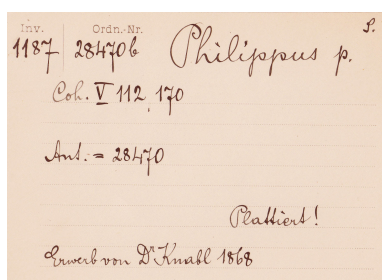 Inv. Ordn.-Nr. S.
1187 28470b Philippus p.
Coh. V 112, 170
Ant. = 28470
Plattiert!
Erwerb von Dr Knabl 1868